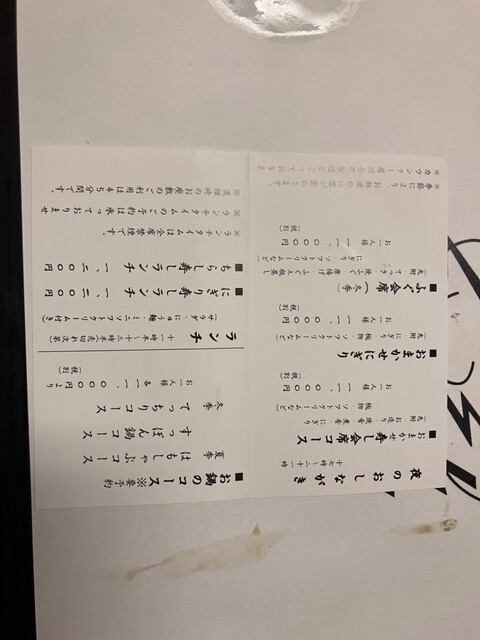 夜のおしながき
十七時~二十一時
■おまかせ寿し会席コース
(附先・お造り・煮肴・焼肴
椀物・ソフトクリームなど)
お一人様 一一、〇〇〇円
(税別)
■おまかせにぎり
(附先・にぎり・椀物・ソフトクリームなど)
お一人様 一一、〇〇〇円
(税別)
■ふぐ会席(冬季)
(附先・てっさ・焼ふぐ・唐揚げ・土瓶蒸し
にぎり・ソフトクリームなど)
お一人様 一一、〇〇〇円
(税別)
※季節により、お料理の内容が変わります。
※カウンター席は
■お鍋のコース※要予約
夏季 はもしゃぶコース
すっぽん鍋コース
冬季 てっちりコース
お一人様 各一一、〇〇〇円より
(税別)
ランチ 十一時半~十三時半 売切れ次第
(サラダ・にゅう麺・ミニソフトクリーム付き)
■にぎり寿しランチ 一、二〇〇円
■ちらし寿しランチ 一、二〇〇円
※ランチタイムは全席禁煙です。
※ランチタイムのご予約は承っておりませ
※混雑時のお座敷のご利用は45分間です。